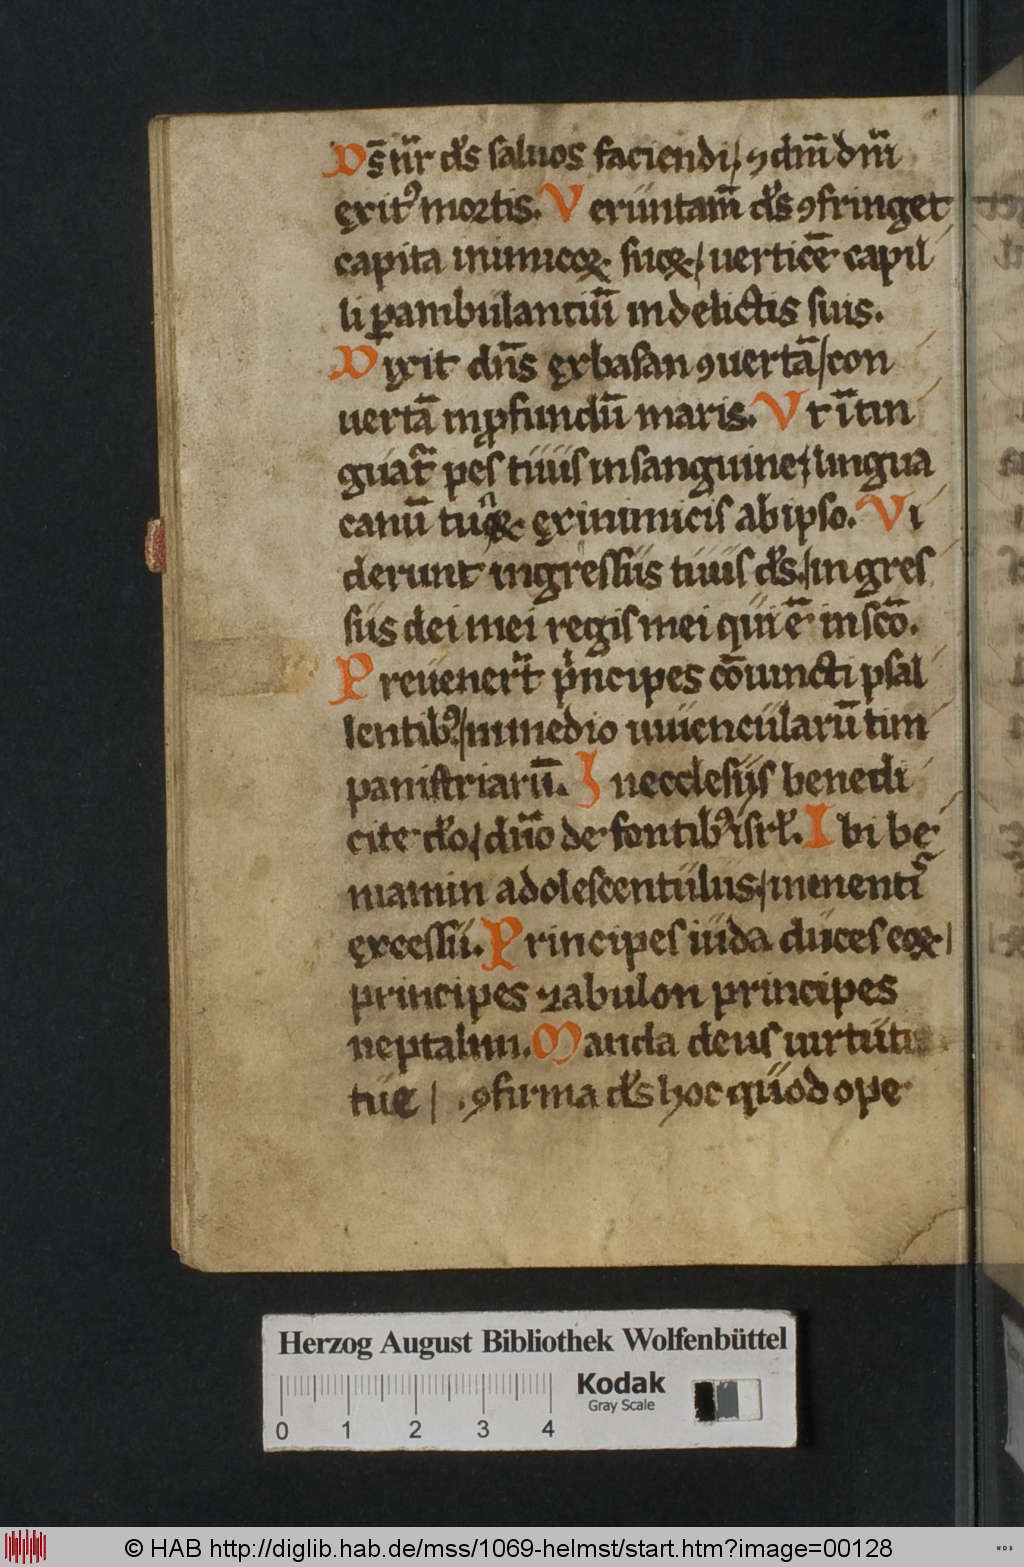 Ds̄ nr̄ ds̄ saluos faciendi / ꝯ dn̄i dn̄i
ęxitꝰ mortis. Veruntam̄ ds̄ ꝯfringet
capita inimicoꝝ suoꝝ / uerticē capil
li ꝑambulantiū in delictis suis.
Dixit dn̄s ęxbasan ꝯuertā / con
uertā in ꝓfundū maris. Vt ītin
guat᷑ pes tuus in sanguine / lingua
canū tuoꝝ ęx inimicis ab ipso. Vi
derunt ingressus tuus ds̄ / ingres
sus dei mei regis mei qui ē in scō.
Preuenert̄ pͥncipes cōiuncti psal
lentibꝰ / in medio iuuencularū tim
panistriarū. In ecclesijs benedi
cite dō / dn̄o de fontibꝰ isrł. Ibi be
niamin adolescentulus / in mentis
ęxcessu. Principes iuda duces eoꝝ /
principes zabulon principes
neptalim. Manda deus uirtuti
tuę / ꝯfirma ds̄ hoc quod ope
Herzog August Bibliothek Wolfenbüttel
Kodak
Gray Scale
0 1 2 3 4
© HAB http://diglib.hab.de/mss/1069-helmst/start.htm?image=00128